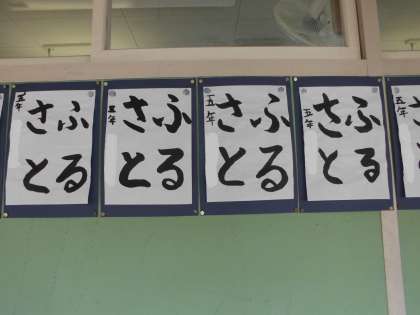 ふる
さと
五年
ふる
さと
五年
ふる
さと
五年
ふる
さと
五年
さと
五年